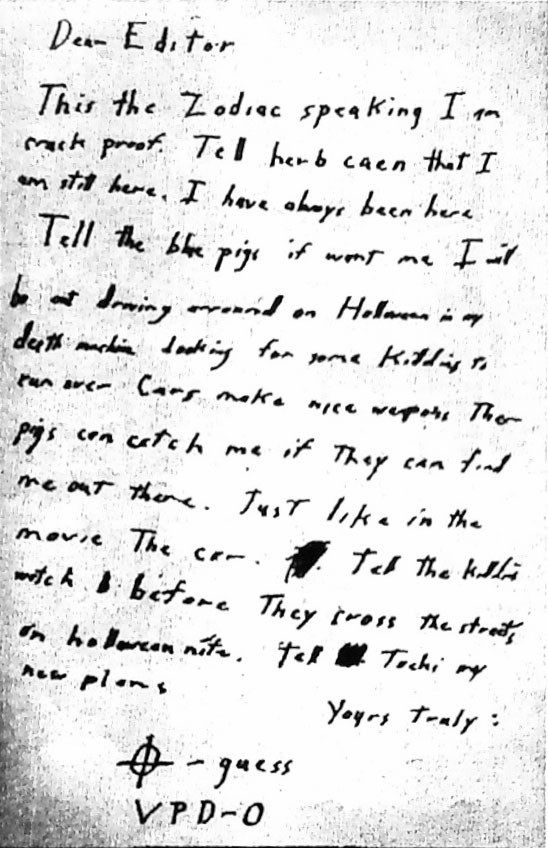 Dear Editor
This the Zodiac speaking I am
crack proof. Tell herb caen that I
am still here. I have always been here
Tell the blue pigs if want me I will
be out driving arround on Halloween in my
death machine looking for some Kiddies to
run over Cars make nice weapons Ther
pigs can catch me if They can find
me out there. Just like in the
movie The car. Tell the kiddies
watch before They cross the streets
on halloween nite. Tell Tochi my
new plans
Yours truly :
- guess
VPD-0